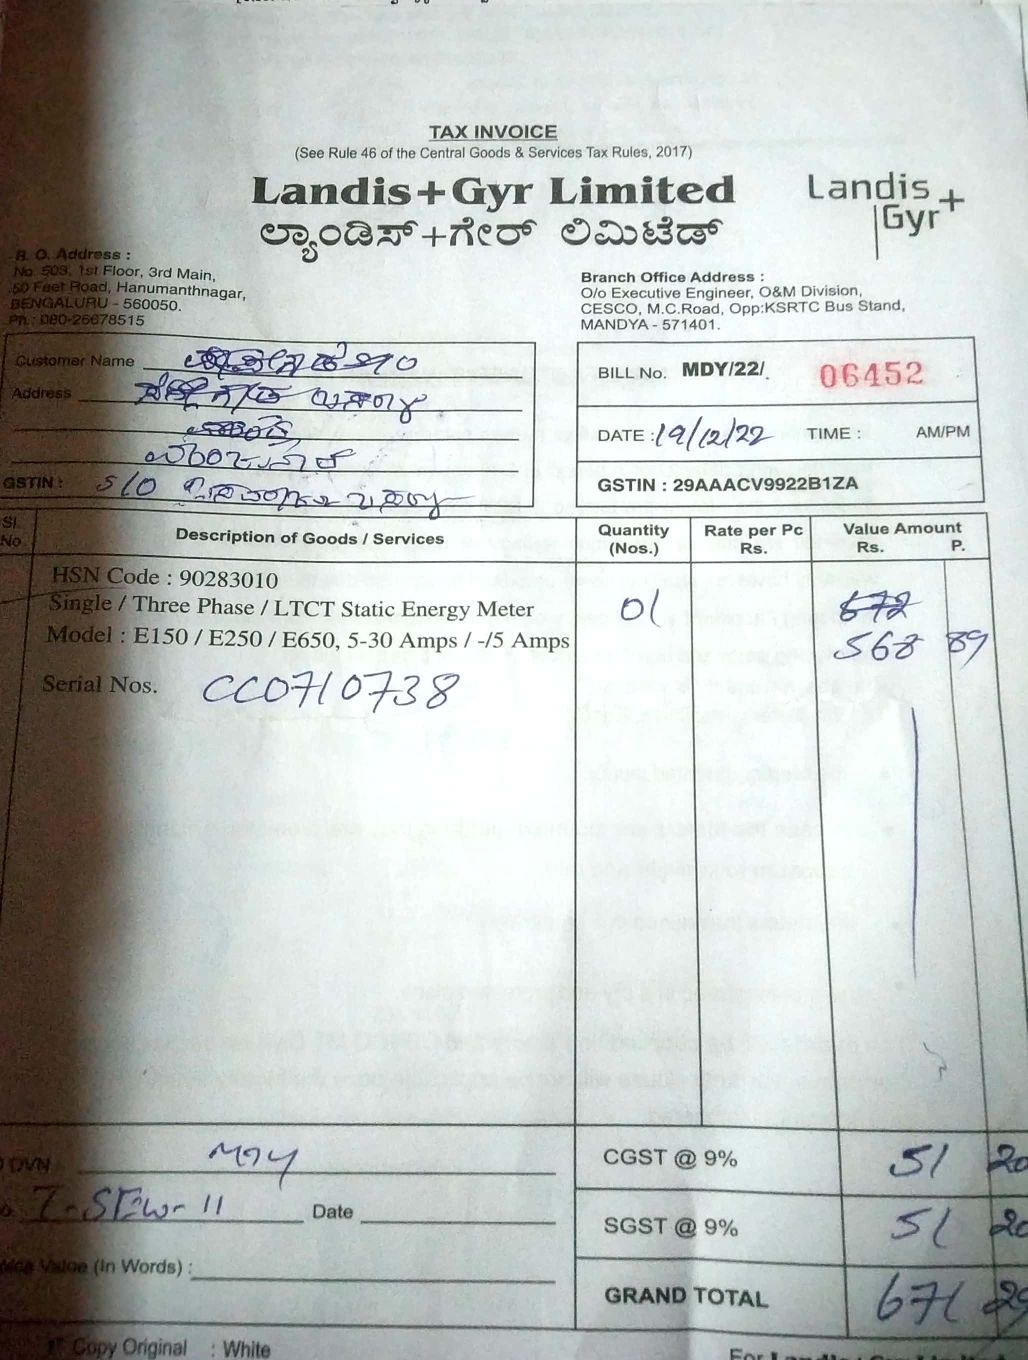 TAX INVOICE
(See Rule 46 of the Central Goods & Services Tax Rules, 2017)
Landis+Gyr Limited
ಲ್ಯಾಂಡಿಸ್+ಗೇರ್ ಲಿಮಿಟೆಡ್
Landis+
Gyr
R. O. Address :
No. 503, 1st Floor, 3rd Main,
50 Feet Road, Hanumanthnagar,
BENGALURU - 560050.
Ph.: 080-26678515
Branch Office Address :
O/o Executive Engineer, O&M Division,
CESCO, M.C.Road, Opp:KSRTC Bus Stand,
MANDYA - 571401.
Customer Name
Address
GSTIN : S/O
BILL No. MDY/22/. 06452
DATE : 19/12/22 TIME : AM/PM
GSTIN : 29AAACV9922B1ZA
Sl. No. Description of Goods / Services Quantity (Nos.) Rate per Pc Rs. Value Amount Rs. P.
HSN Code : 90283010
Single / Three Phase / LTCT Static Energy Meter 01 672
Model : E150 / E250 / E650, 5-30 Amps / -/5 Amps 568 89
Serial Nos. CC0710738
DVN
CGST @ 9% 51 20
Date
SGST @ 9% 51 20
Value (In Words) :
GRAND TOTAL 671 29
1st Copy Original : White
For Landis+Gyr Limited